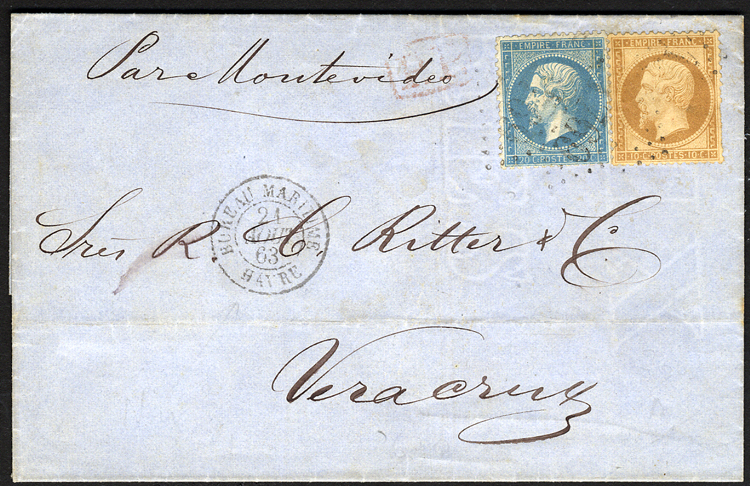 Par Montevideo
EMPIRE FRANC
20 C POSTES 20 C
EMPIRE FRANC
10 C POSTES 10 C
BUREAU MARITIME
21
AOUT
63
HAVRE
Srés R. C. Ritter & C
Veracruz